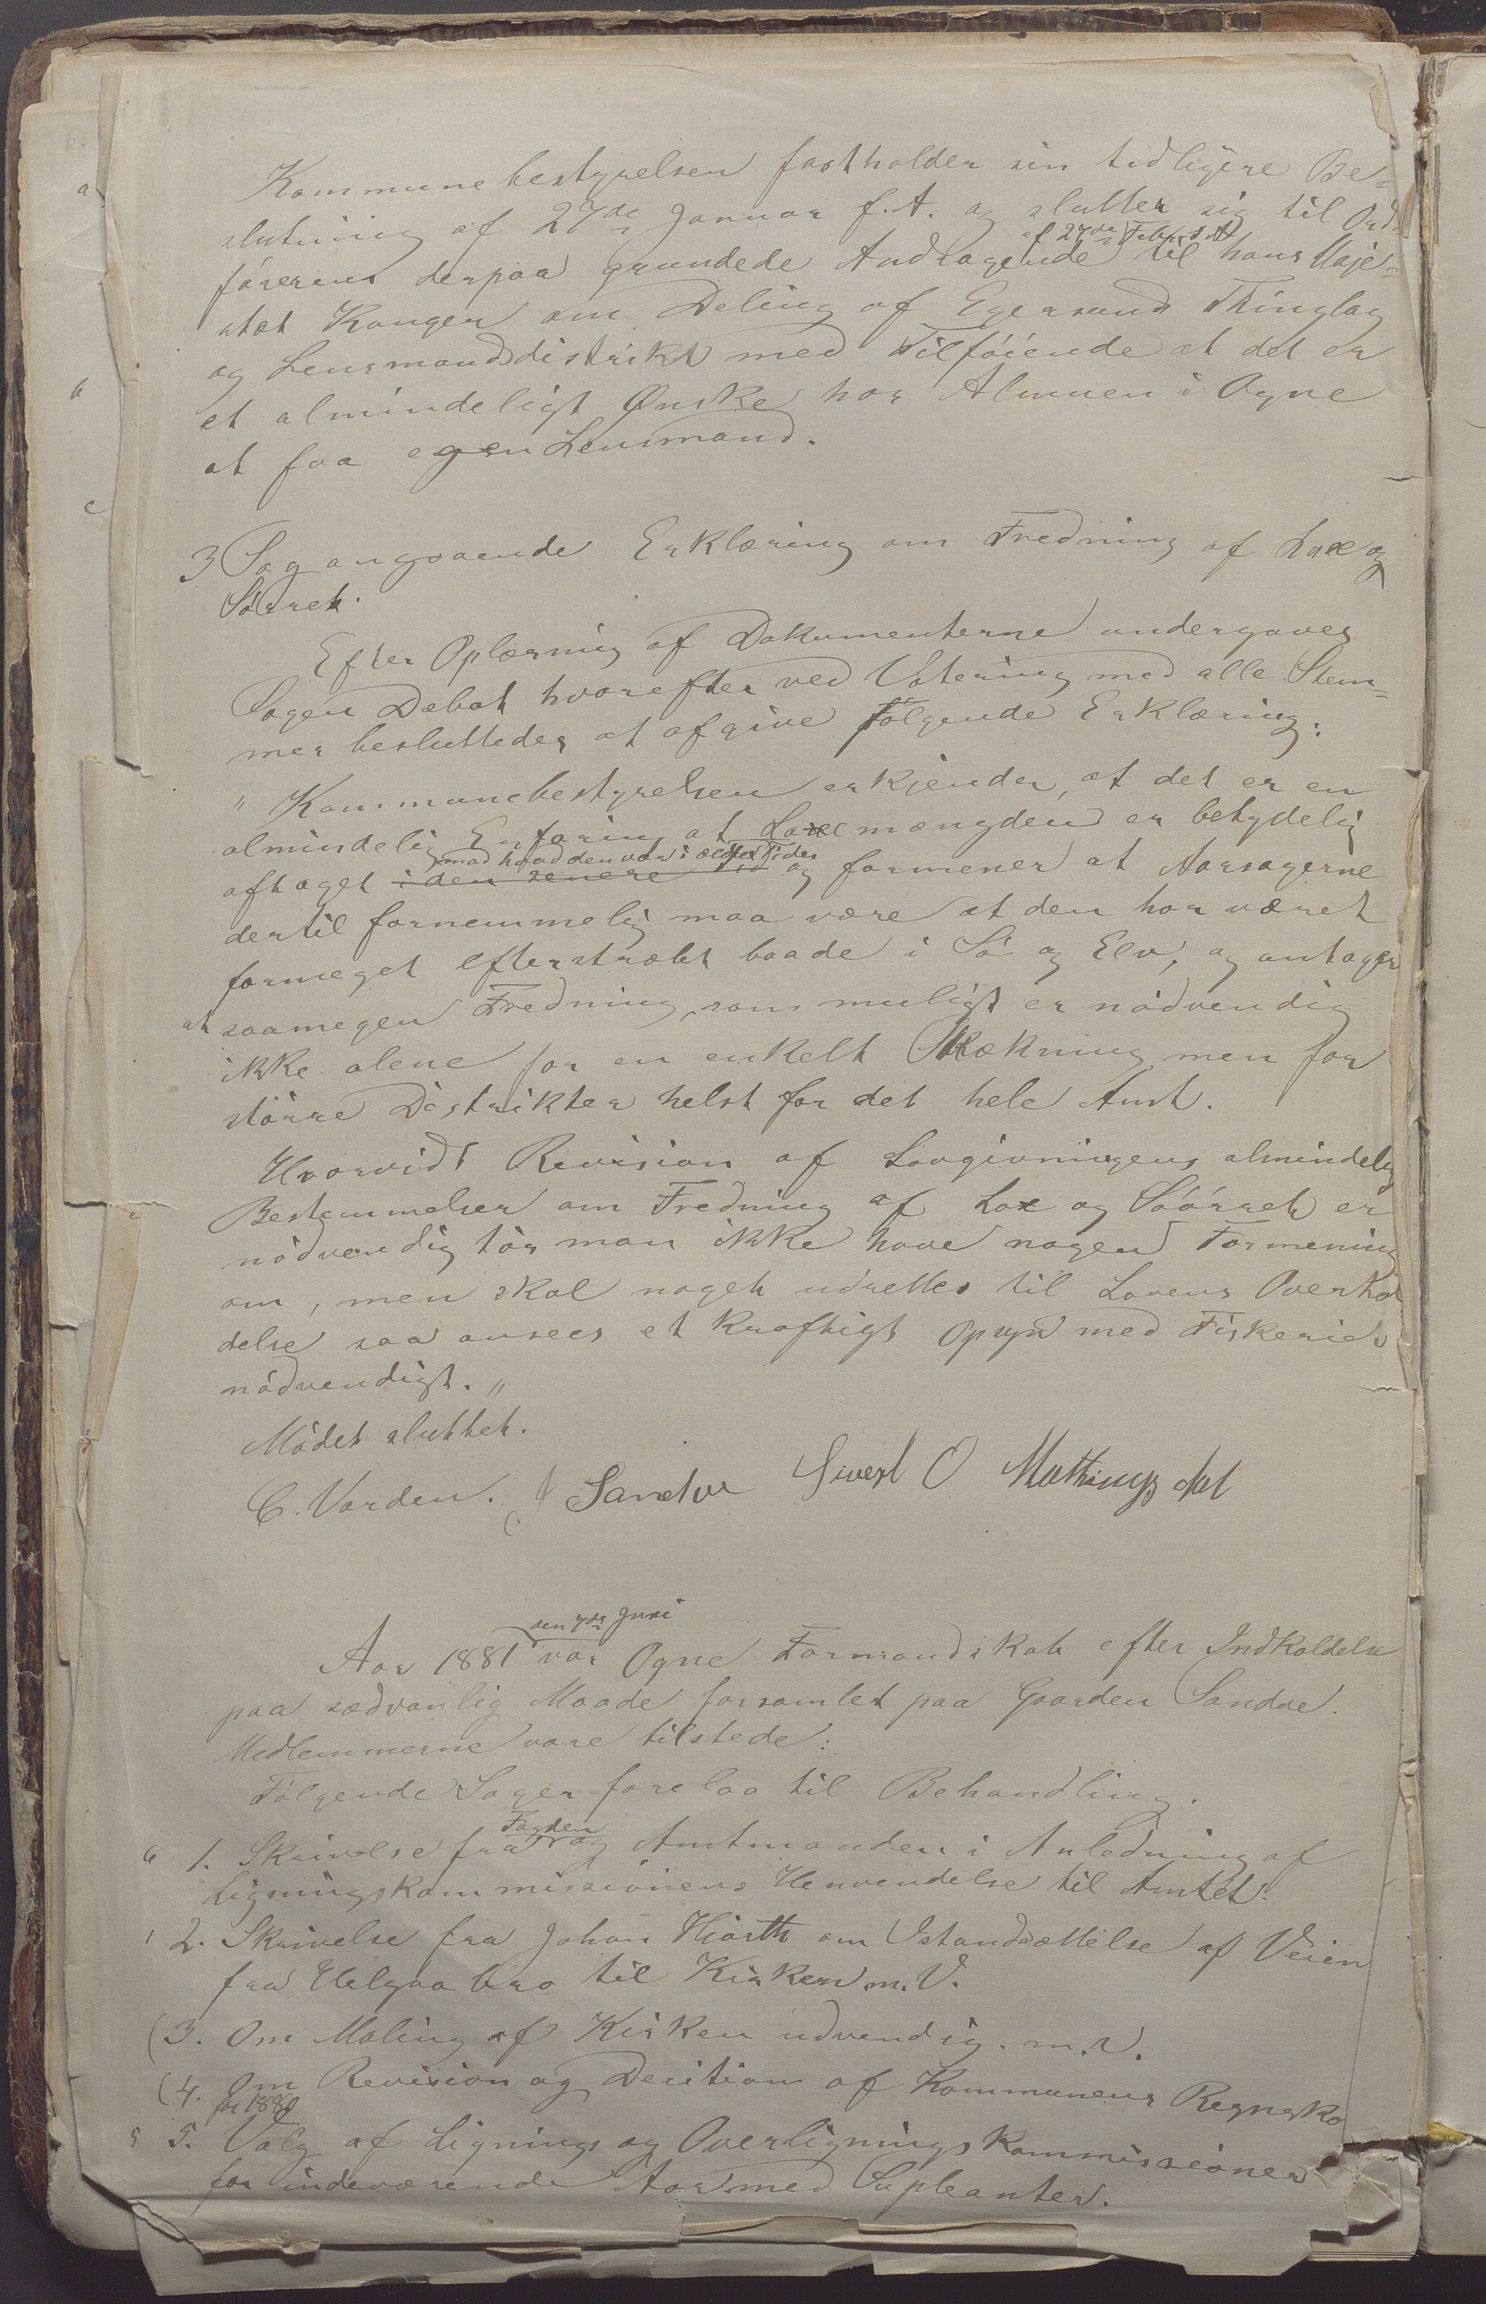 Kommunebestyrelsen fastholder sin tidligere Be=
slutning af 27de Januar f. A. og slutter sig til Ord=
förerens derpaa grundede Andragende af 27de Febr. f. A. til hans Maje=
stæt Kongen om Deling af Egersund Thinglag
og Lensmandsdistrikt med Tilföiende at det er
et almindeligt Ønske hos Almuen i Ogne
at faa egen Lensmand.
3 Sag angaaende Erklæring om Fredning af Lax og
Sörret.
Efter Oplæsning af Dokumenterne undergaves
Sagen Debat hvorefter ved Votering med alle Stem=
mer besluttedes at afgive følgende Erklæring:
" Kommunebestyrelsen erkjender, at det er en
almindelig Erfaring at Laxemængden er betydelig
aftaget i den senere Tid mod hvad den var i ældre Tider og formener at Aarsagerne
dertil fornemmelig maa være at den har været
formeget efterstræbt baade i Sö og Elv, og antager
at saamegen Fredning, som muligt er nödvendig
ikke alene for en enkelt Strækning men for
större Distrikter helst for det hele Amt.
Hvorvidt Revision af Lovgivningens almindelig
Bestemmelser om Fredning af Lax og Söörret er
nödvendig tör man ikke have nogen Formening
om, men skal noget udrettes til Lovens Overhol
delse saa ansees et kraftigt Opsyn med Fiskeriet
nödvendigt. "
Mödet sluttet.
C. Varden. J Sandve Sivert O Mathingsdal
Aar 1881 den 7de Juni var Ogne Formandskab efter Indkaldelse
paa sædvanlig Maade forsamlet paa Gaarden Sandve.
Medlemmerne vare tilstede:
Følgende Sager forelaa til Behandling.
6 1. Skrivelse fra Fogden og Amtmanden i Anledning af
Ligningskommissionens Henvendelse til Amtet.
1 2. Skrivelse fra Johan Hiorth om Istandsættelse af Veien
fra Helgaa bro til Kirken m. V.
(3. Om Maling af Kirken udvendig. m. v.
(4. Om Revision og Decition af Kommunens Regnska
for 1880
5 5. Valg af Lignings og Overligningskommissioner
for indeværende Aar med Supleanter.